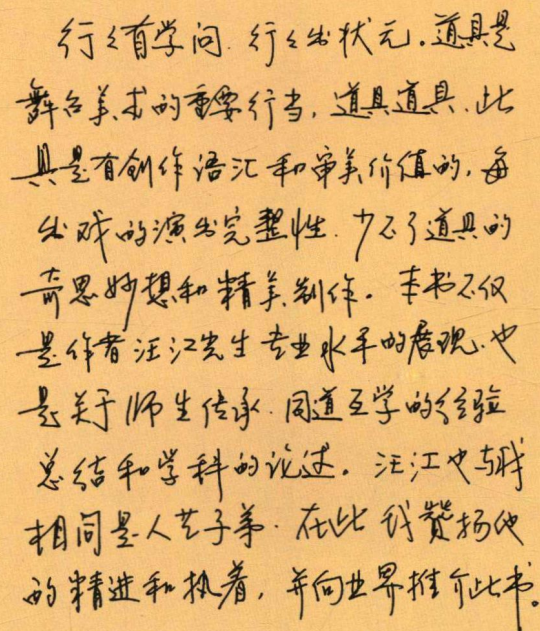 行々有学问.行々出状元。道具是
舞台美术的重要行当，道具道具、此
具是有创作语汇和审美价值的，每
出戏的演出完整性、少不了道具的
奇思妙想和精美制作。本书不仅
是作者汪江先生专业水平的展现、也
是关于师生传承、同道互学的经验
总结和学科的论述。汪江也与我
相同是人艺子弟.在此我赞扬他
的精进和执着，并向业界推介此书。